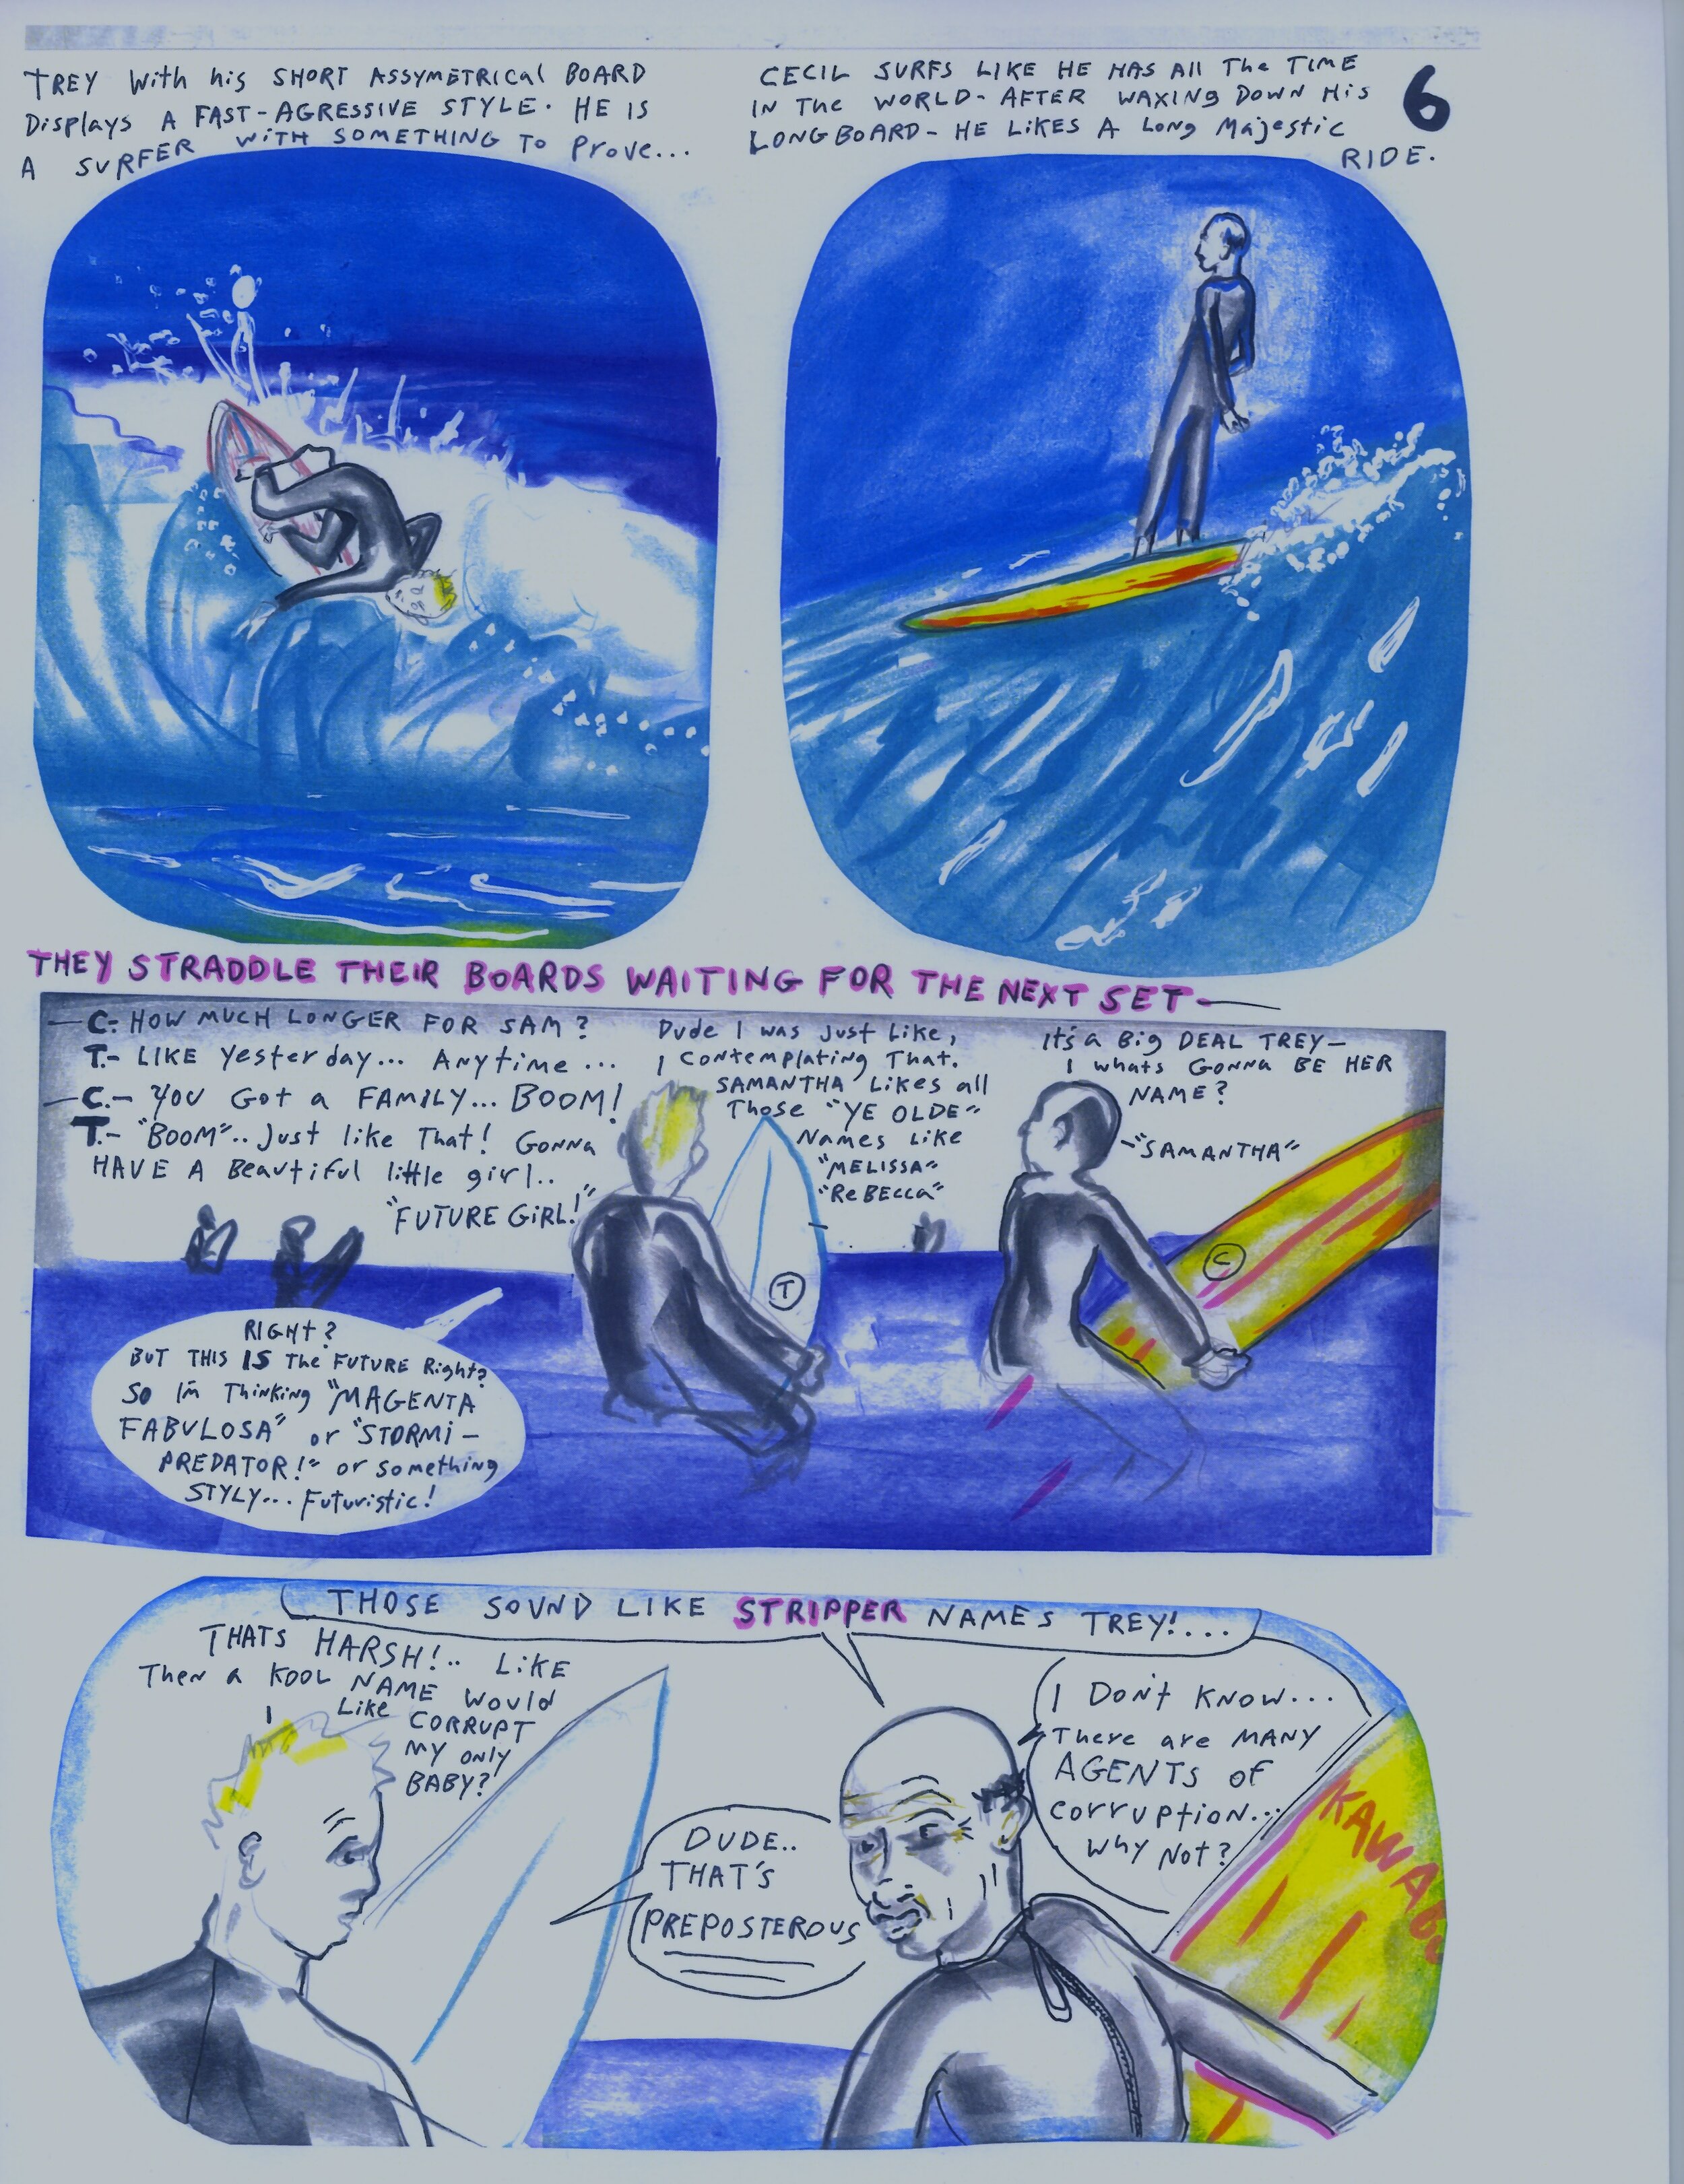 TREY With his SHORT ASSYMETRICAL BOARD
Displays A FAST-AGRESSIVE STYLE. HE IS
A SURFER WITH SOMETHING TO Prove...
CECIL SURFS LIKE HE HAS All The TIME
IN The WORLD- AFTER WAXING DOWN His
LONGBOARD- HE LIKES A Long Majestic
RIDE.
6
THEY STRADDLE THEIR BOARDS WAITING FOR THE NEXT SET-
-C: HOW MUCH LONGER FOR SAM?
T.- LIKE yesterday... Anytime...
-C.- YOU Got a FAMILY... BOOM!
T.- "BOOM".. Just like That! GONNA
HAVE A Beautiful little girl..
"FUTURE GIRL!"
Dude I was Just Like,
Contemplating That.
SAMANTHA Likes all
Those "YE OLDE"
Names Like
"MELISSA"
"ReBEcca"
It's a Big DEAL TREY-
whats GONNA BE HER
NAME?
-"SAMANTHA"
T
C
RIGHt?
BUT THIS IS The FUTURE Right?
SO I'm Thinking "MAGENTA
FABULOSA" or "STORMi-
PREDATOR!" or something
STYLY... Futuristic!
THOSE SOUND LIKE STRIPPER NAMES TREY!...
THATS HARSH!.. LIKE
Then a KOOL NAME Would
Like CORRUPT
MY only
BABY?
I Don't KNOW...
There are MANY
AGENTS of
corruption...
Why Not?
DUDE..
THAT'S
PREPOSTEROUS
KAWABU